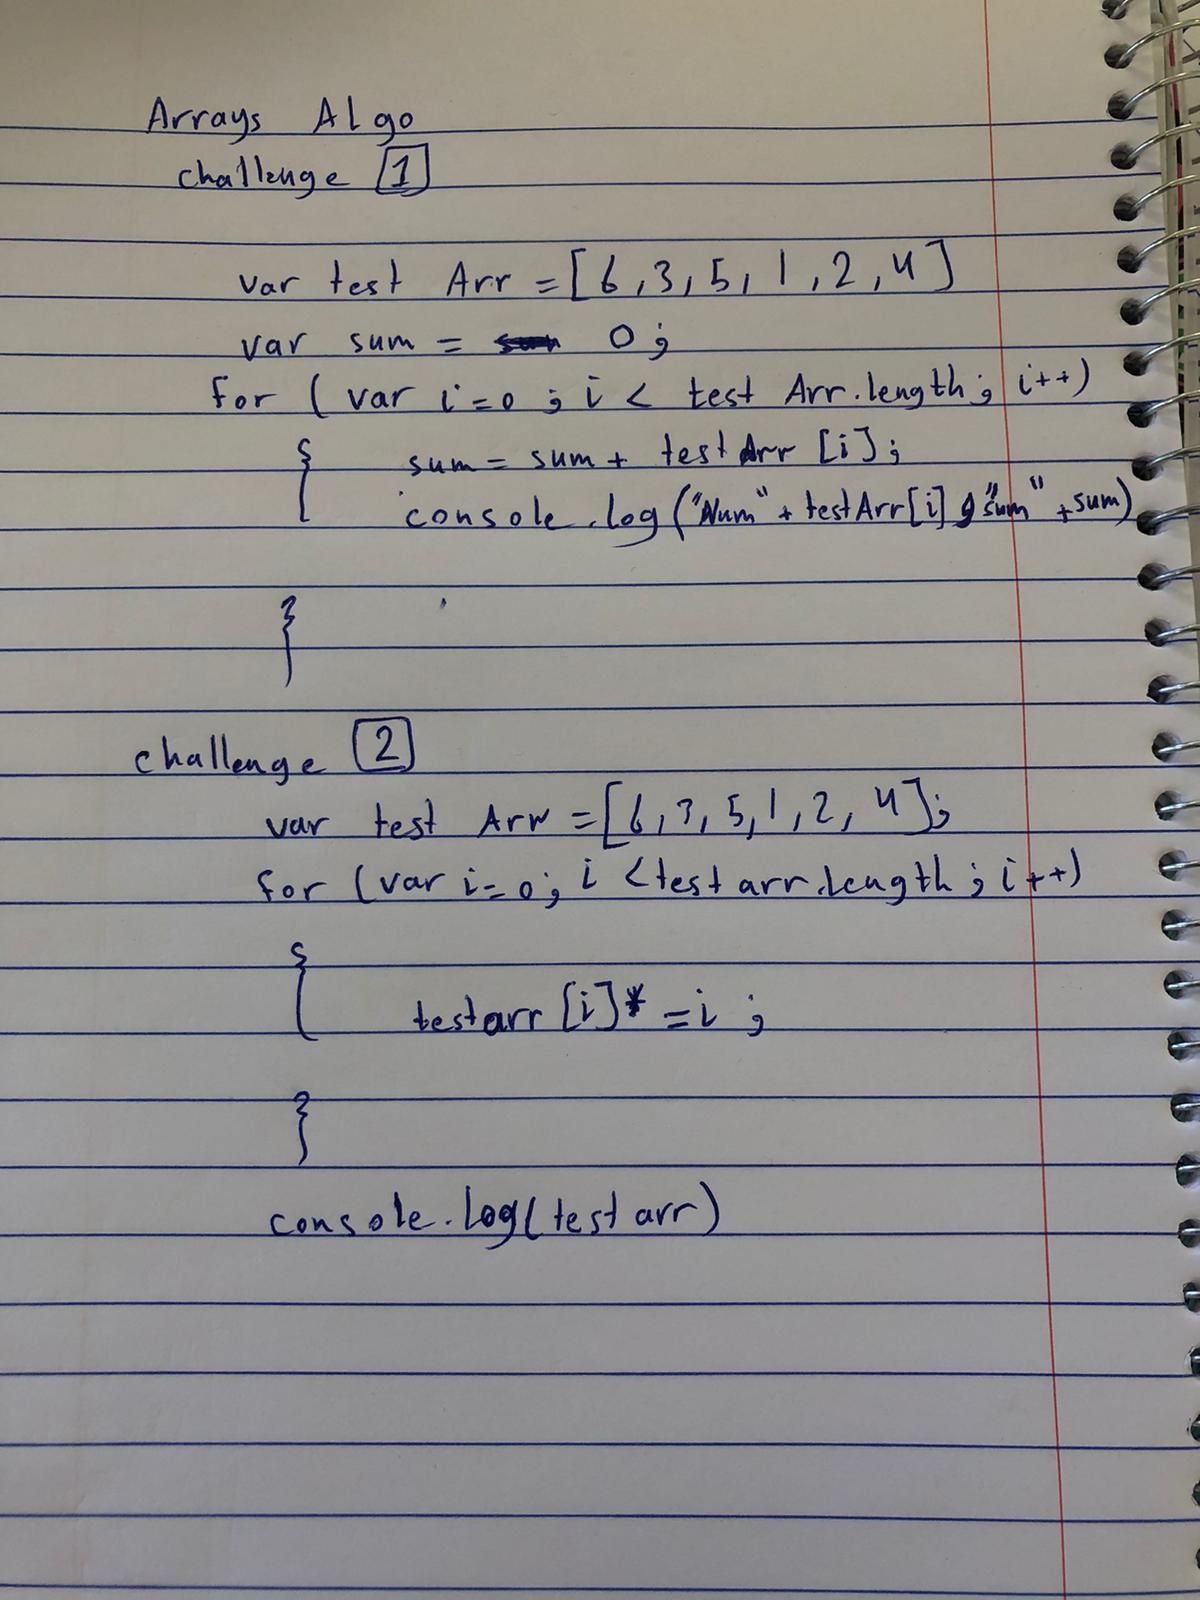 Arrays Algo
challenge 1
var test Arr = [6,3,5,1,2,4]
var sum = 0;
for (var i=0; i < test Arr.length; i++)
{ sum = sum + testArr [i];
console.log("Num" + testArr[i] , "sum" + sum)
}
challenge 2
var test Arr = [6,3,5,1,2,4];
for (var i=0; i < test arr.length; i++)
{
testarr [i]* = i ;
}
console.log(test arr)